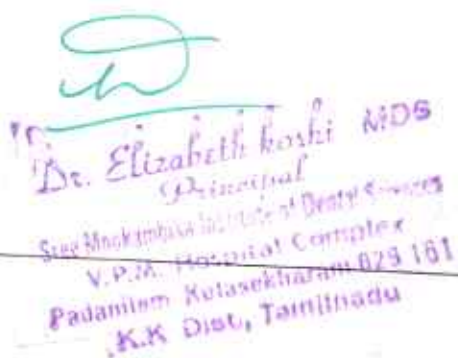 Dr. Elizabeth koshi MDS
Principal
Sree Mookambika Institute of Dental Sciences
V.P.M. Hospital Complex
Padanilam Kulasekharam 629 161
K.K Dist, Tamilnadu